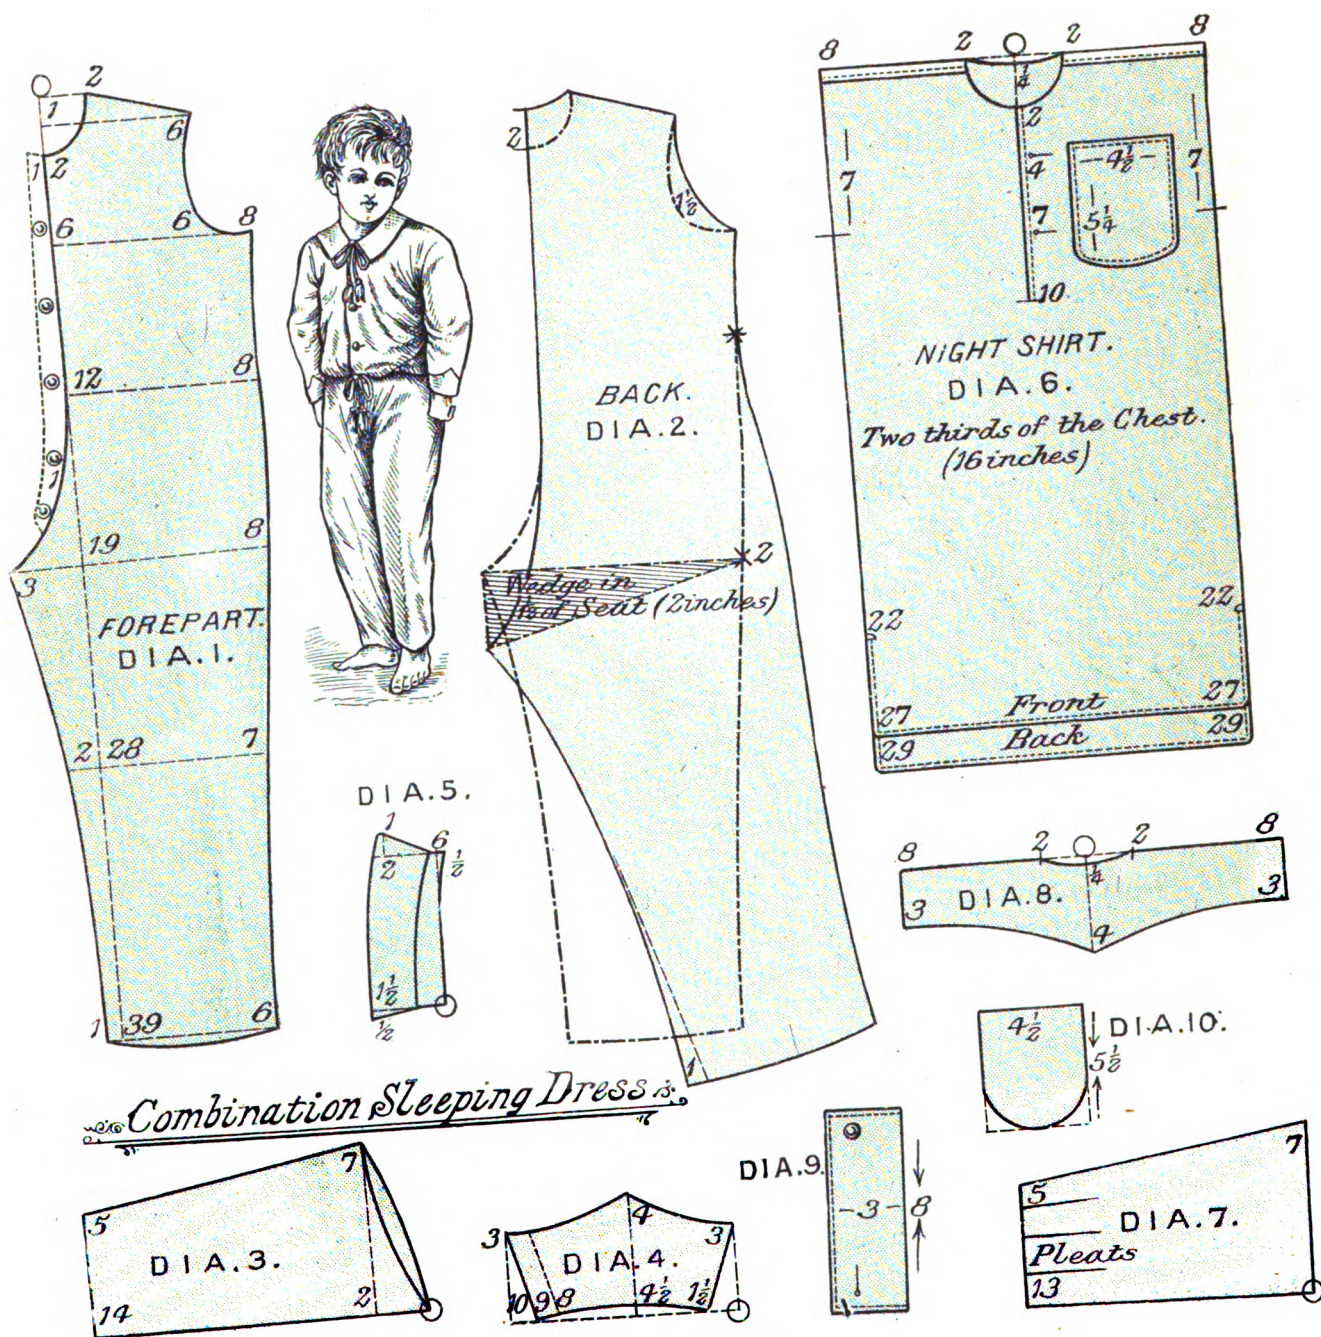 2
1
6
1 2
6 6 8
12 8
1
19 8
3
FOREPART.
DIA.1.
2 28 7
1 39 6
2
1½
BACK.
DIA.2.
2
Wedge in
⅟ of Seat (2inches)
1
8 2 2 8
¼
2
4
7
10
7
4½
5¼
7
NIGHT SHIRT.
DIA.6.
Two thirds of the Chest.
(16 inches)
22 22
27 Front 27
29 Back 29
DIA.5.
1 6
2 ½
1½
½
8 2 2 8
¼
3 DIA.8. 3
4
4½ DIA.10.
5½
Combination Sleeping Dress
7
5
DIA.3.
14 2
3 4 3
DIA.4.
10 9 8 4½ 1½
DIA.9.
3 8
7
5
DIA.7.
Pleats
13